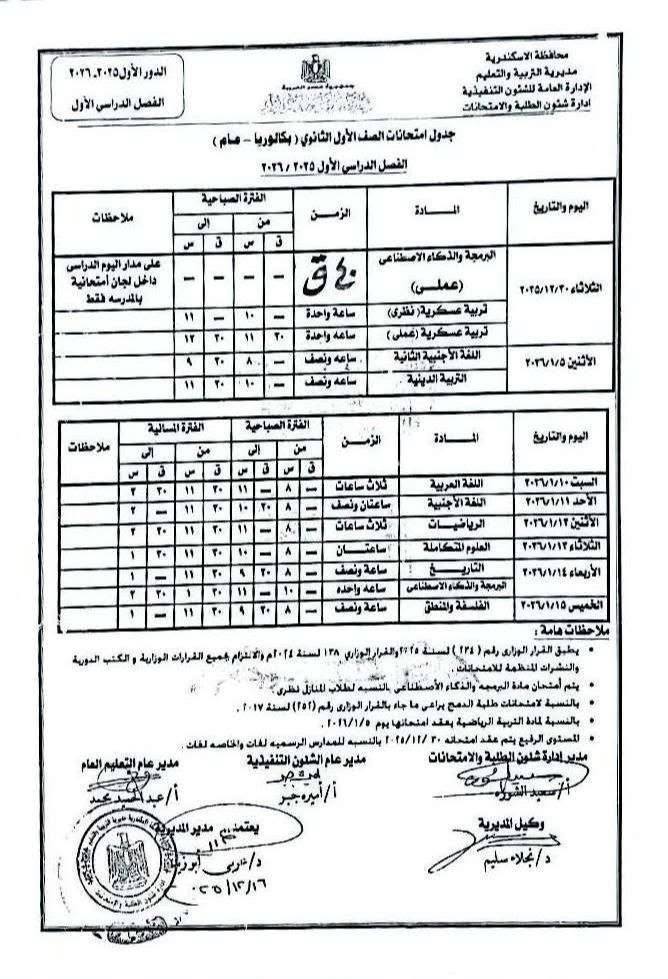 محافظة الاسكندرية
مديرية التربية والتعليم
الإدارة العامة للشئون التنفيذية
ادارة شئون الطلبة والامتحانات
جمهورية مصر العربية
الدور الأول ٢٠٢٥ـ٢٠٢٦
الفصل الدراسي الأول
جدول امتحانات الصف الأول الثانوي ( بكالوريا - عام )
الفصل الدراسي الأول ٢٠٢٥ / ٢٠٢٦
اليوم والتاريخ المـــادة الزمـن الفترة الصباحية ملاحظات
من إلى
ق س ق س
الثلاثاء ٢٠٢٥/١٢/٣٠ البرمجة والذكاء الاصطناعى (عملى) ٤٠ ق — — — — على مدار اليوم الدراسى داخل لجان أمتحانية بالمدرسه فقط
تربية عسكرية (نظرى) ساعة واحدة — ١٠ — ١١
تربية عسكرية (عملى) ساعة واحدة ٣٠ ١١ ٣٠ ١٢
الأثنين ٢٠٢٦/١/٥ اللغة الأجنبية الثانية ساعه ونصف — ٨ ٣٠ ٩
التربية الدينية ساعه ونصف — ١٠ ٣٠ ١١
اليوم والتاريخ المـــادة الزمـن الفترة الصباحية الفترة المسائية ملاحظات
من إلى من إلى
ق س ق س ق س ق س
السبت ٢٠٢٦/١/١٠ اللغة العربية ثلاث ساعات — ٨ — ١١ ٣٠ ١١ ٣٠ ٢
الأحد ٢٠٢٦/١/١١ اللغة الأجنبية ساعتان ونصف — ٨ ٣٠ ١٠ ٣٠ ١١ — ٢
الأثنين ٢٠٢٦/١/١٢ الرياضيات ثلاث ساعات — ٨ — ١١ ٣٠ ١١ ٣٠ ٢
الثلاثاء ٢٠٢٦/١/١٣ العلوم المتكاملة ساعتـــان — ٨ — ١٠ ٣٠ ١١ ٣٠ ١
الأربعاء ٢٠٢٦/١/١٤ التاريـــخ ساعة ونصف — ٨ ٣٠ ٩ ٣٠ ١١ — ١
البرمجة والذكاء الاصطناعى ساعه واحده — ١٠ — ١١ ٣٠ ١ ٣٠ ٢
الخميس ٢٠٢٦/١/١٥ الفلسفة والمنطق ساعة ونصف — ٨ ٣٠ ٩ ٣٠ ١١ — ١
ملاحظات هامة :
• يطبق القرار الوزارى رقم ( ٢٣٤ ) لسنة ٢٠٢٥ والقرار الوزاري ١٣٨ لسنة ٢٠٢٤م والالتزام بجميع القرارات الوزارية و الكتب الدورية
والنشرات المنظمة للامتحانات .
• يتم أمتحان مادة البرمجه والذكاء الأصطناعى بالنسبه لطلاب المنازل نظرى .
• بالنسبة لامتحانات طلبة الدمج يراعى ما جاء بالقرار الوزارى رقم (٢٥٢) لسنة ٢٠١٧ .
• بالنسبة لمادة التربية الرياضية يعقد امتحانها يوم ٢٠٢٦/١/٥ .
• المستوى الرفيع يتم عقد امتحانه ٣٠ /٢٠٢٥/١٢ بالنسبه للمدارس الرسميه لغات والخاصه لغات .
مدير إدارة شئون الطلبة والامتحانات مدير عام الشئون التنفيذية مدير عام التعليم العام
أ/ أميره جبر
وكيل المديرية
د/ نجلاء سليم
يعتمد ،، مدير المديرية
٢٠٢٥/١٢/١٦